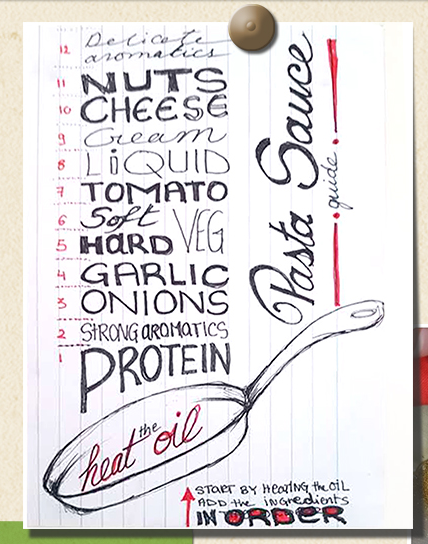 12 Delicate
aromatics
11 NUTS
10 CHEESE
9 Cream
8 LiQUID
7 TOMATO
6 Soft VEG
5 HARD
4 GARLIC
3 ONIONS
2 STRONG AROMATICS
1 PROTEIN
Pasta Sauce
guide
heat the oil
START BY HEATING the OIL
ADD the ingredients
IN ORDER